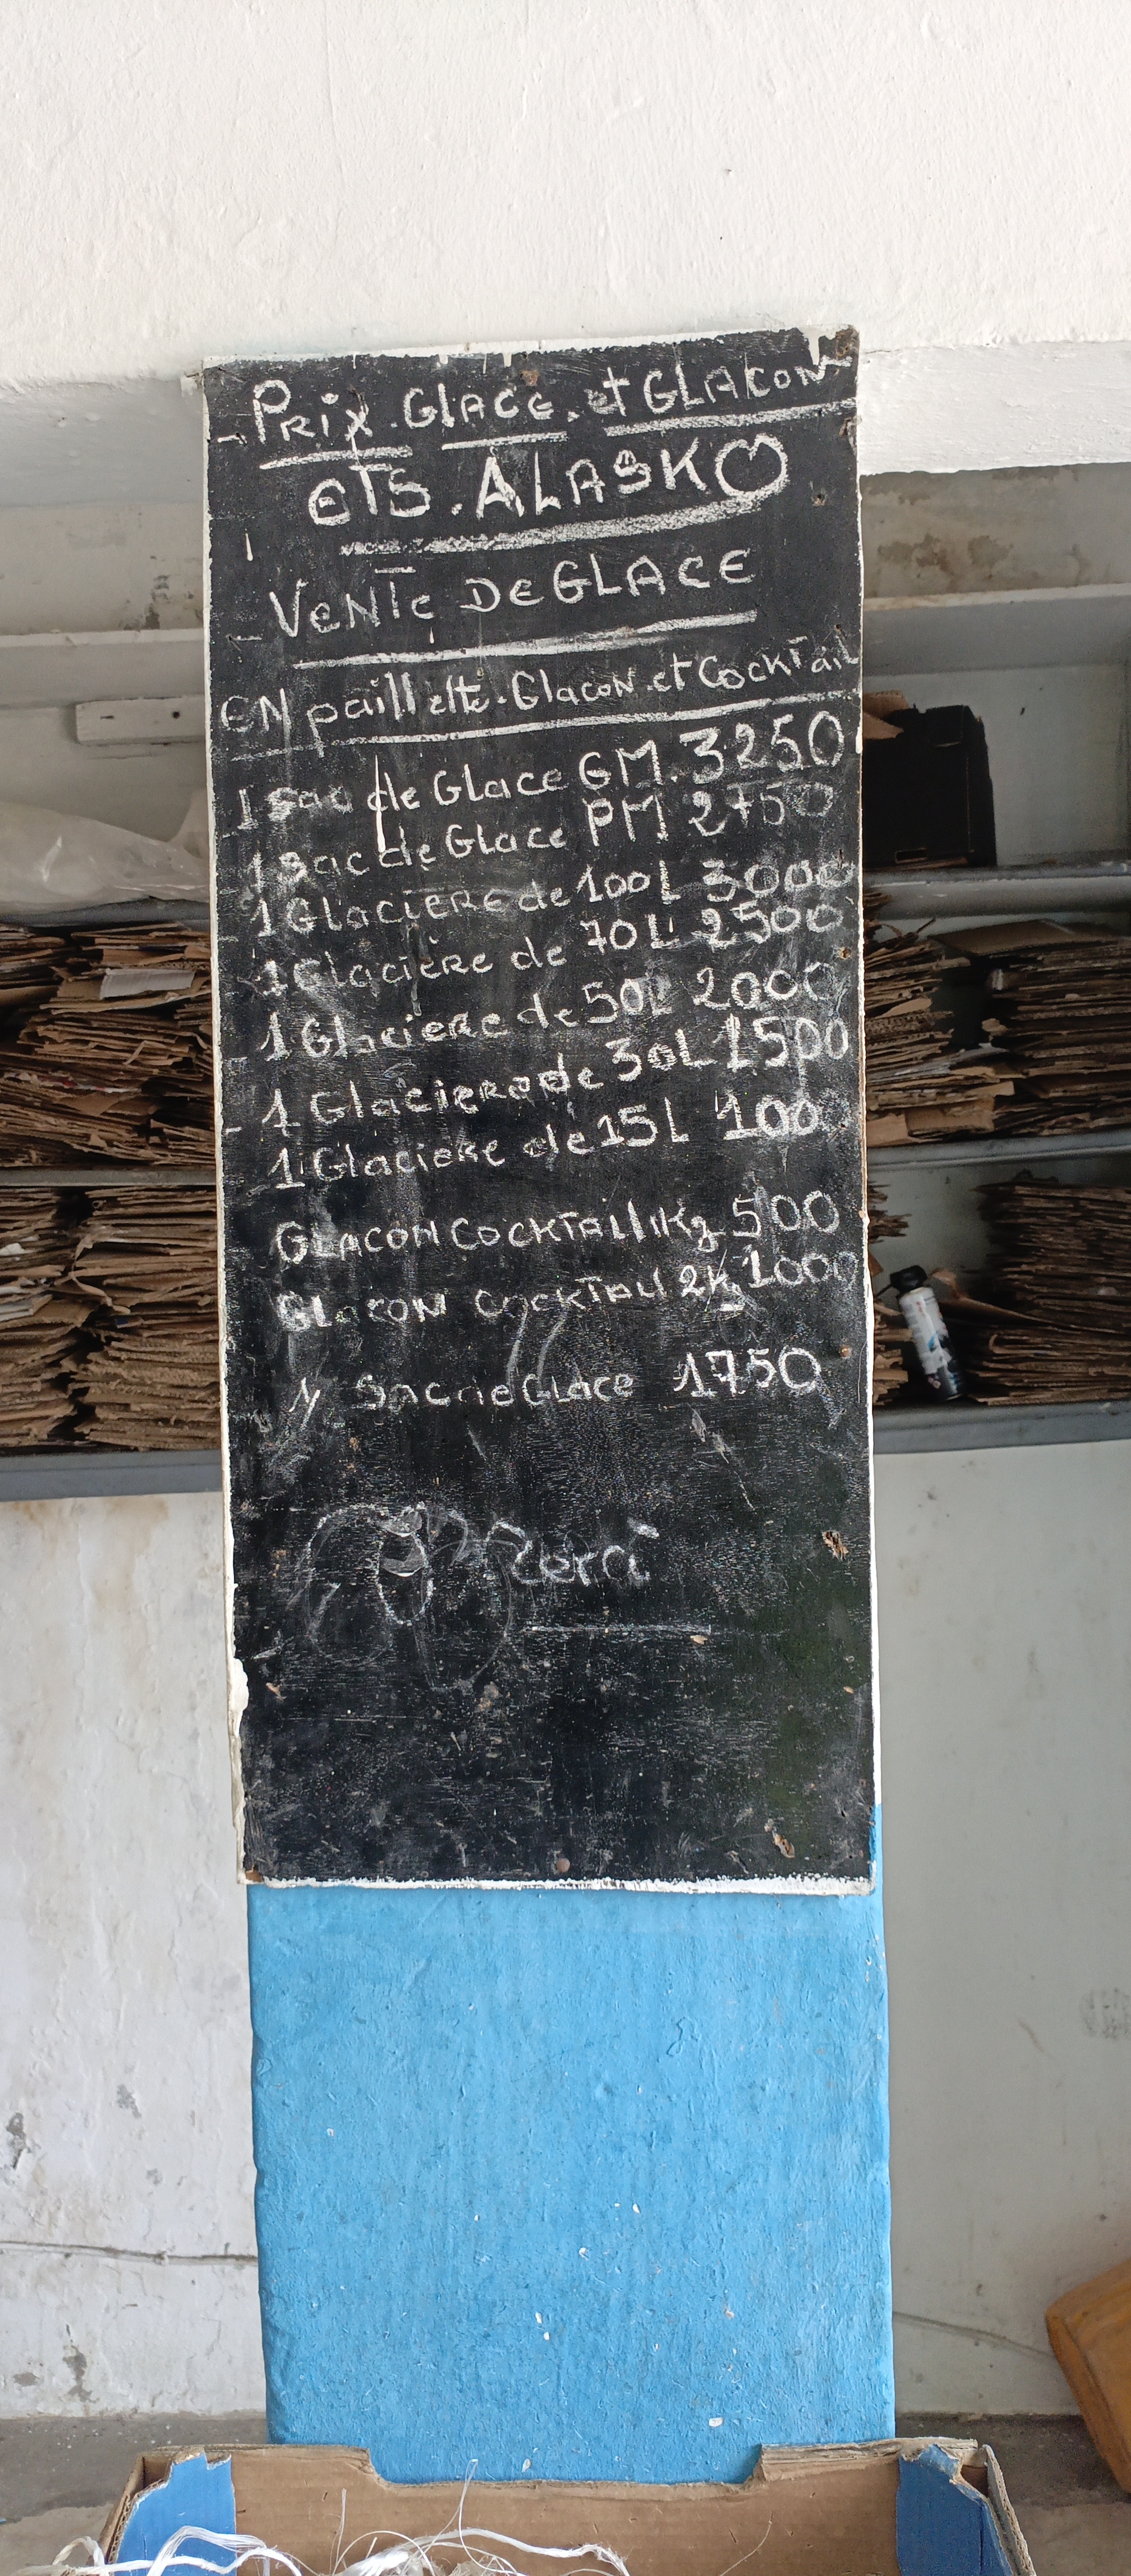 PRix. GLACE. et GLACON
ETS. ALASKO
VENTE DE GLACE
EN paillette. Glacon. et CockTail
1 Sac de Glace GM. 3250
1 Sac de Glace PM 2750
1 GLACIERE de 100L 3000
1 Glacière de 70L 2500
1 Glaciere de 50L 2000
1 Glaciere de 30L 1500
1 Glaciere de 15L 100
GLACON COCKTAil 1Kg 500
GLACON COCKTAil 2Kg 1000
1/ SAC de Glace 1750
Merci